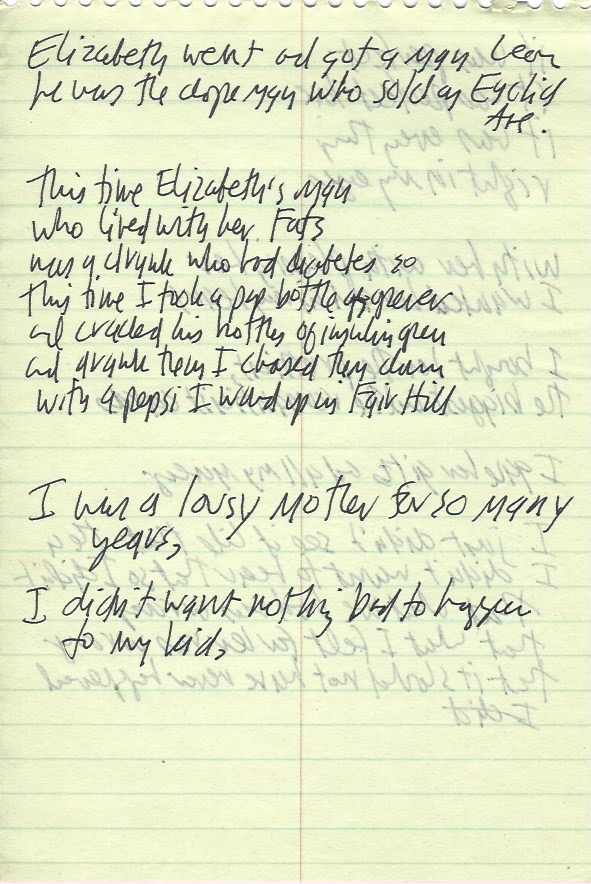 Elizabeth went and got a man Leon
he was the dope man who sold on Euclid
Ave.
This time Elizabeth's man
who lived with her Fats
was a drunk who had diabetes so
This time I took a pop bottle opener
and cracked his bottles of insulin open
and drank them I chased them down
with a pepsi I wound up in Fair Hill
I was a lousy mother for so many
years,
I didn't want nothing bad to happen
to my kids